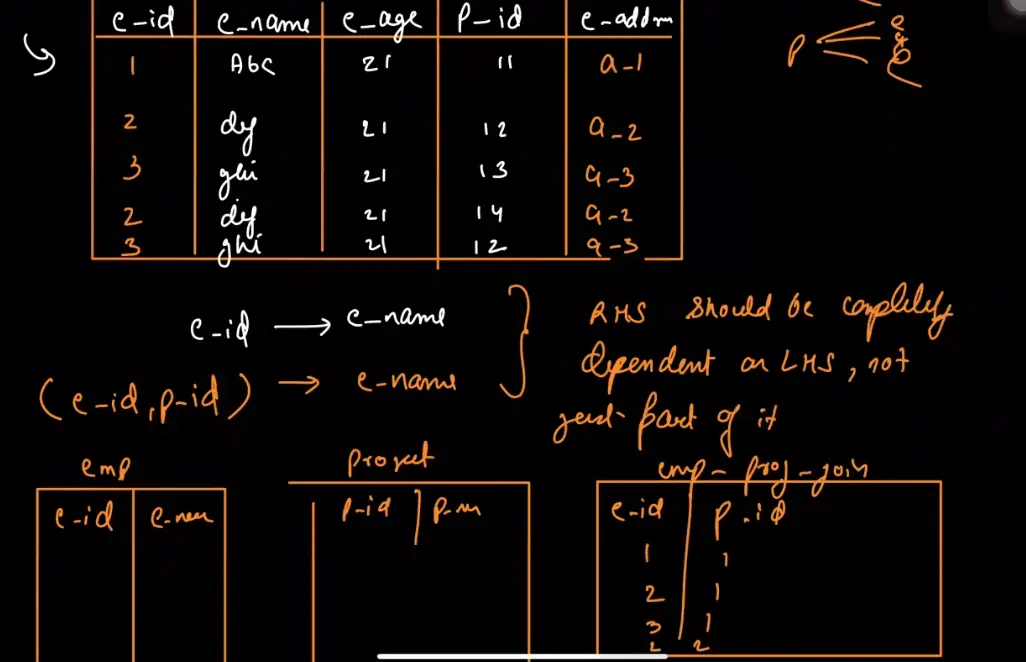 e-id e-name e-age P-id e-addrs
1 Abc 21 11 a-1
2 def 21 12 a-2
3 ghi 21 13 a-3
2 def 21 14 a-2
3 ghi 21 12 a-3
P
e-id → e-name
(e-id, p-id) → e-name
RHS should be completely
dependent on LHS, not
just part of it
emp
e-id e-nam
project
p-id p-n
emp-proj-join
e-id p-id
1 1
2 1
3 1
2 2